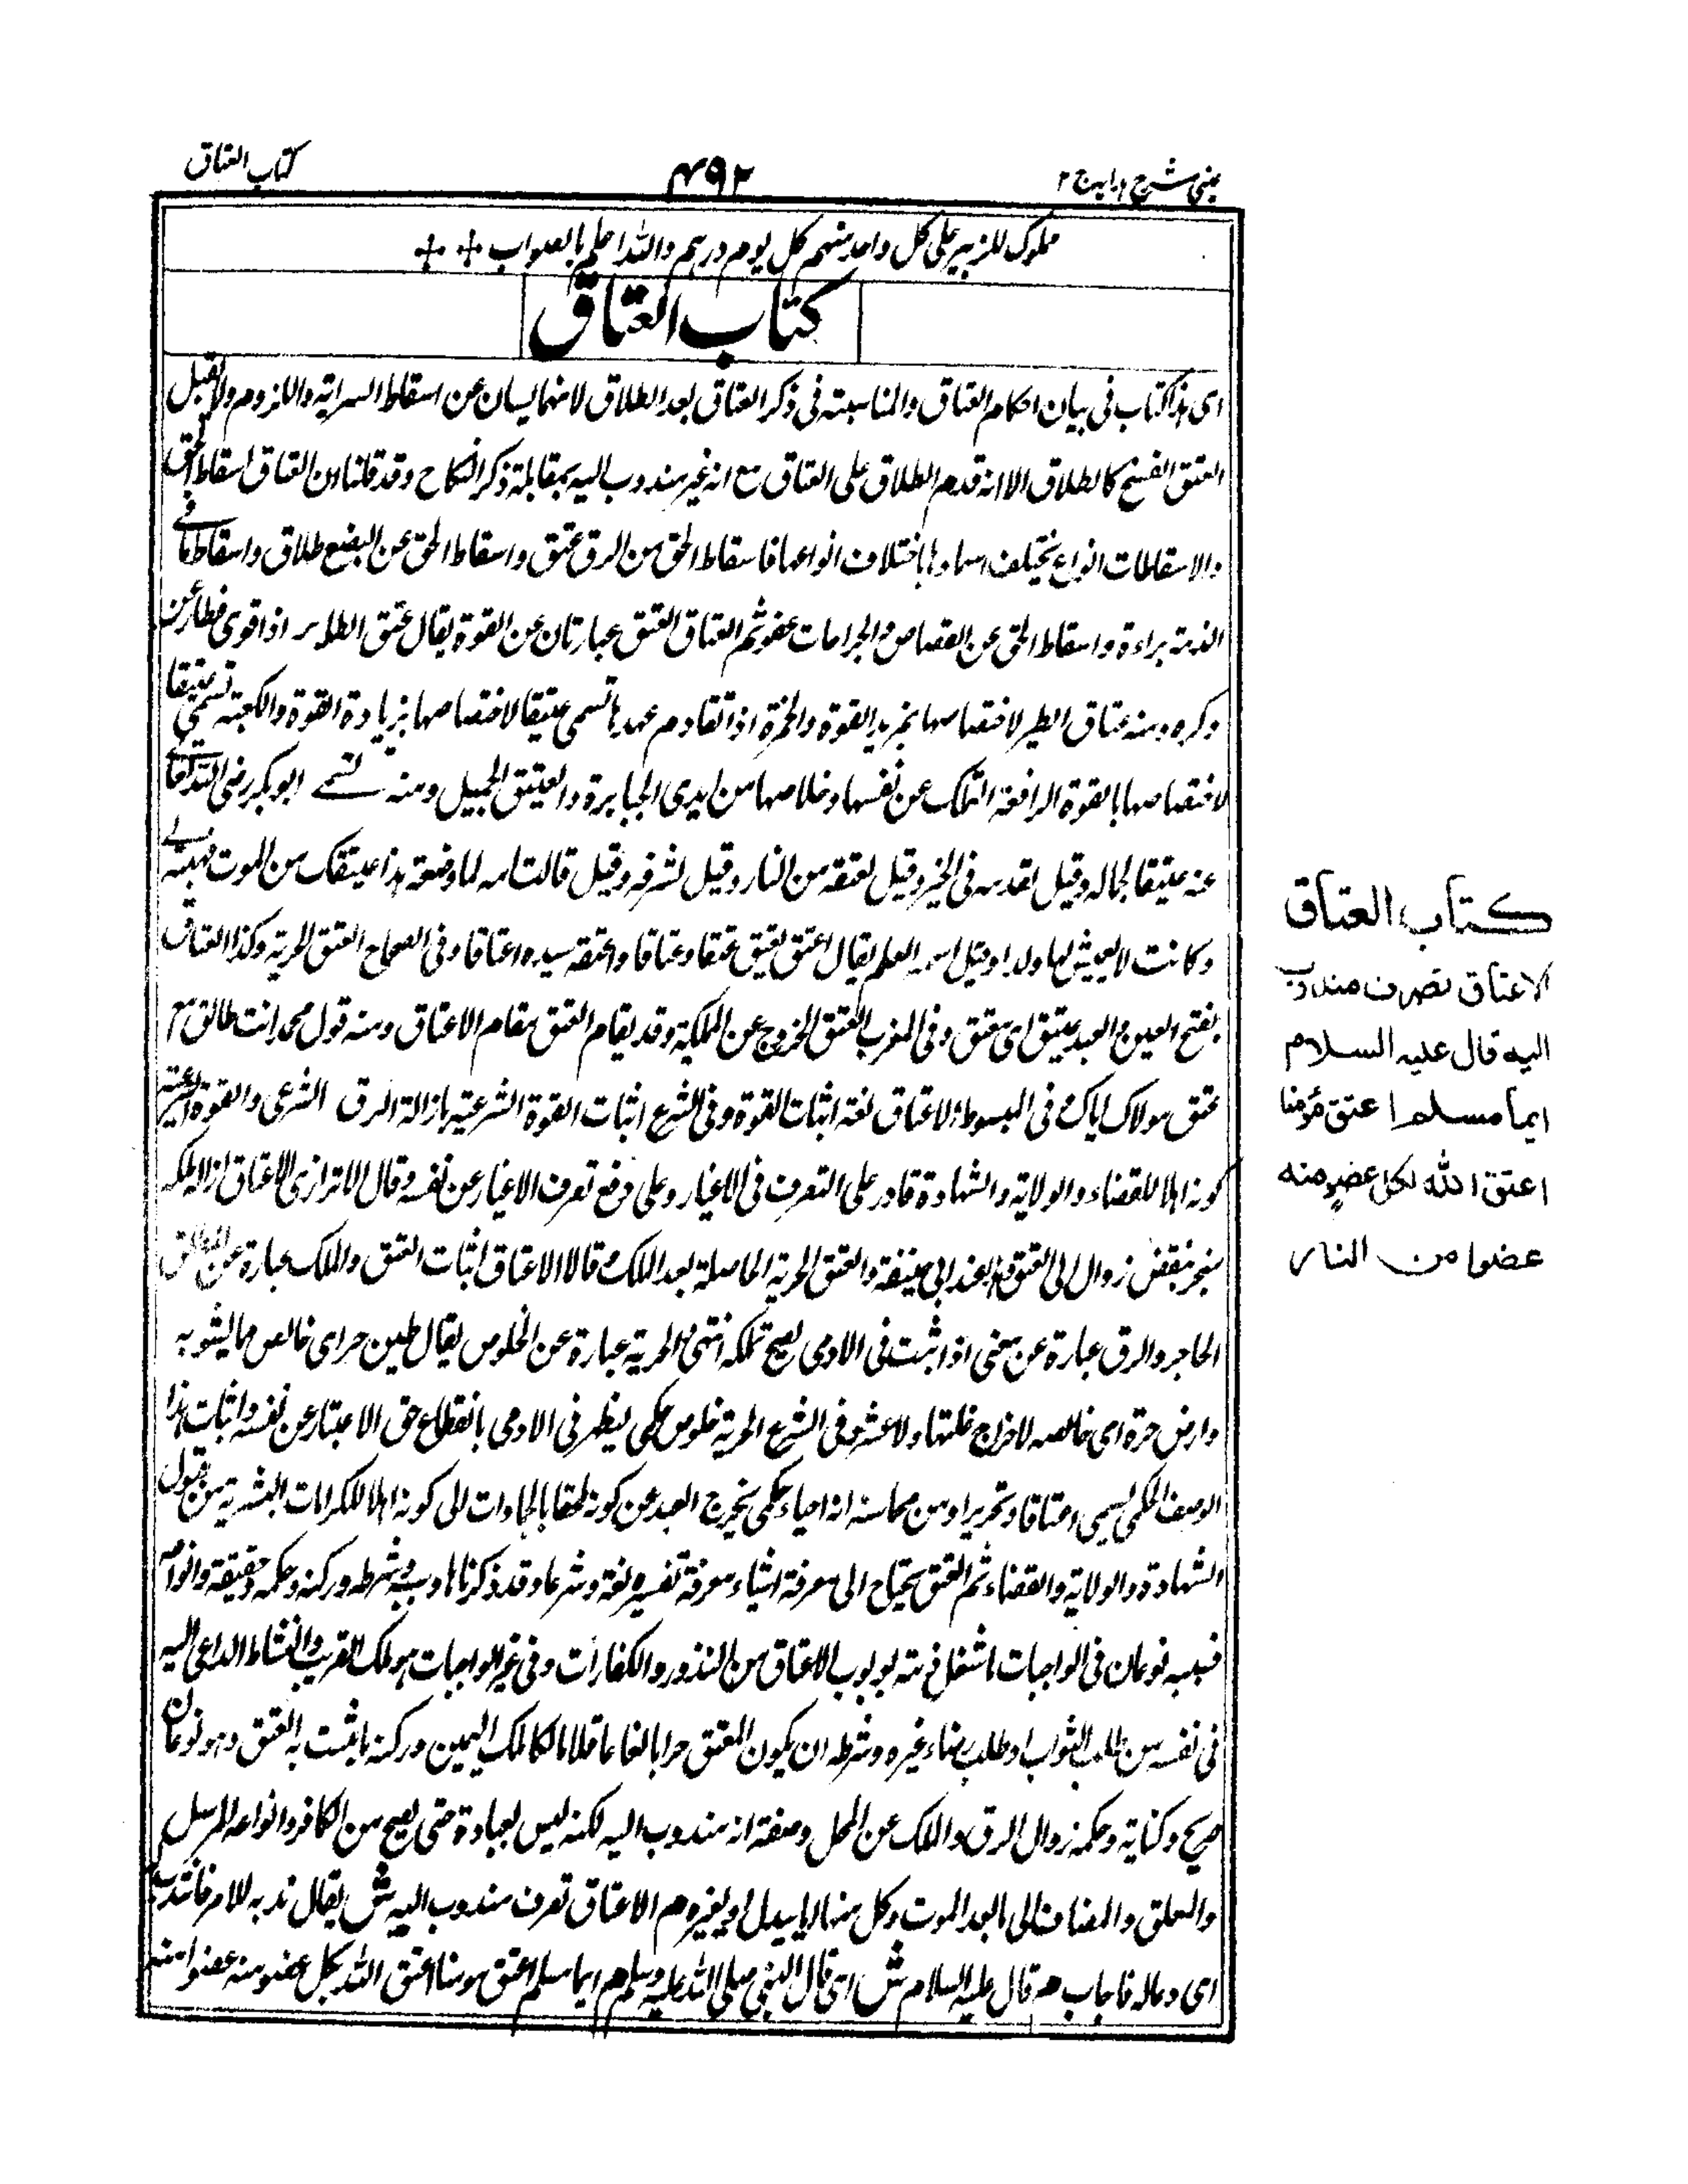 عینی شرح ہدایہ ج ۲
۴۹۲
کتاب العتاق
مملوک للزبیر علی کل واحد منهم کل یوم درهم والله اعلم بالصواب
کتاب العتاق
ای هذا کتاب فی بیان احکام العتاق والمناسبة فی ذکر العتاق بعد الطلاق لانهما یسان عن اسقاط السرایة واللزوم ولا یقبل
العتق الفسخ کالطلاق الا انه قدم الطلاق علی العتاق مع انه غیر مندوب الیه بمقابلة ذکر النکاح وقد قلنا ان العتاق اسقاط الحق
والاسقاطات انواع یختلف اسماءها باختلاف انواعها فاسقاط الحق من الرق عتق واسقاط الحق عن البضع طلاق واسقاط ما فی
الذمة براءة واسقاط الحق عن القصاص والجراحات عفو ثم العتاق العتق عبارتان عن القوة یقال عتق الطائر اذا قوی فطار عن
وکره ومنه عتاق الطیر لاختصاصها بمزید القوة والخمرة اذا تقادم عهدها تسمی عتیقا لاختصاصها بزیادة القوة والکعبة تسمی عتیقا
لاختصاصها بالقوة الدافعة التملک عن نفسها وخلاصها من ایدی الجبابرة والعتیق الجمیل ومنه تسمی ابو بکر رضی الله تعالی
عنه عتیقا لجماله وقیل لقدمه فی الخیر وقیل لعتقه من النار وقیل لشرفه وقیل قالت امه لما وضعته هذا عتیقک من الموت فهبه لی
وکانت لا یعیش لها ولد او قیل اسمه العلم یقال عتق یعتق عتقا وعتاقا واعتقه سیده اعتاقا وفی الصحاح العتق الحریة وکذا العتاق
بفتح العین والعبد عتیق ای معتق وفی المغرب العتق الخروج عن المملکیة وقد یقام العتق مقام الاعتاق ومنه قول محمد انت طالق مع
عتق مولاک ایاک وفی المبسوط الاعتاق لغة اثبات القوة وفی الشرع اثبات القوة الشرعیة بازالة الرق الشرعی والقوة الشرعیة
کونه اهلا للقضاء والولایة والشهادة قادر علی التصرف فی الاغیار وعلی دفع تصرف الاغیار عن نفسه وقال الاترازی الاعتاق ازالة ملکه
زوال الی العتق هذا عند ابی حنیفة والعتق الحریة الحاصلة بعد الملک وقالا الاعتاق اثبات العتق والملک عبارة عن المطلق
الحاجز والرق عبارة عن معنی اذا ثبت فی الادمی یصح تملکه انتهی والحریة عبارة عن الخلوص یقال طین حر ای خالص مما یشوبه
وارض حرة ای خالصه لا خراج علیها ولا عشر وفی الشرع الحریة خلوص حکمی یظهر فی الادمی بانقطاع حق الاغیار عن نفسه واثبات هذا
الوصف الحکمی یسمی اعتاقا وتحریرا ومن محاسنه انه احیاء حکمی یخرج العبد عن کونه ملحقا بالجمادات الی کونه اهلا للکرامات البشریة من قبول
الشهادة والولایة والقضاء ثم العتق یحتاج الی معرفة اشیاء معرفة تفسیره لغة وشرعا وقد ذکرناها وسببه وشرطه ورکنه وحکمه وحقیقة وانواعه
فسببه نوعان فی الواجبات اشتغل ذمته بوجوب الاعتاق من النذور والکفارات وفی غیر الواجبات هو ملک القریب والنشاط الداعی الیه
فی نفسه من طلب الثواب او طلب رضاء غیره وشرطه ان یکون المعتق حرا بالغا عاقلا مالکا ملک الیمین ورکنه ما یثبت به العتق وهو نوعان
صریح وکنایة وحکمه زوال الرق والملک عن المحل وصفته انه مندوب الیه لکنه لیس بعبادة حتی یصح من الکافر وانواعه المرسل
والمعلق والمضاف الی ما بعد الموت وکل منها اما ببدل او بغیره م الاعتاق تصرف مندوب الیه ش یقال ندبه للامر فانتدب
ای دعاله فاجاب م قال علیه السلام ش ای قال النبی صلی الله علیه وسلم م ایما مسلم اعتق مؤمنا اعتق الله بکل عضو منه عضوا منه
کتاب العتاق
الاعتاق تصرف مندوب
الیه قال علیه السلام
ایما مسلم اعتق مؤمنا
اعتق الله لکل عضو منه
عضوا من النار